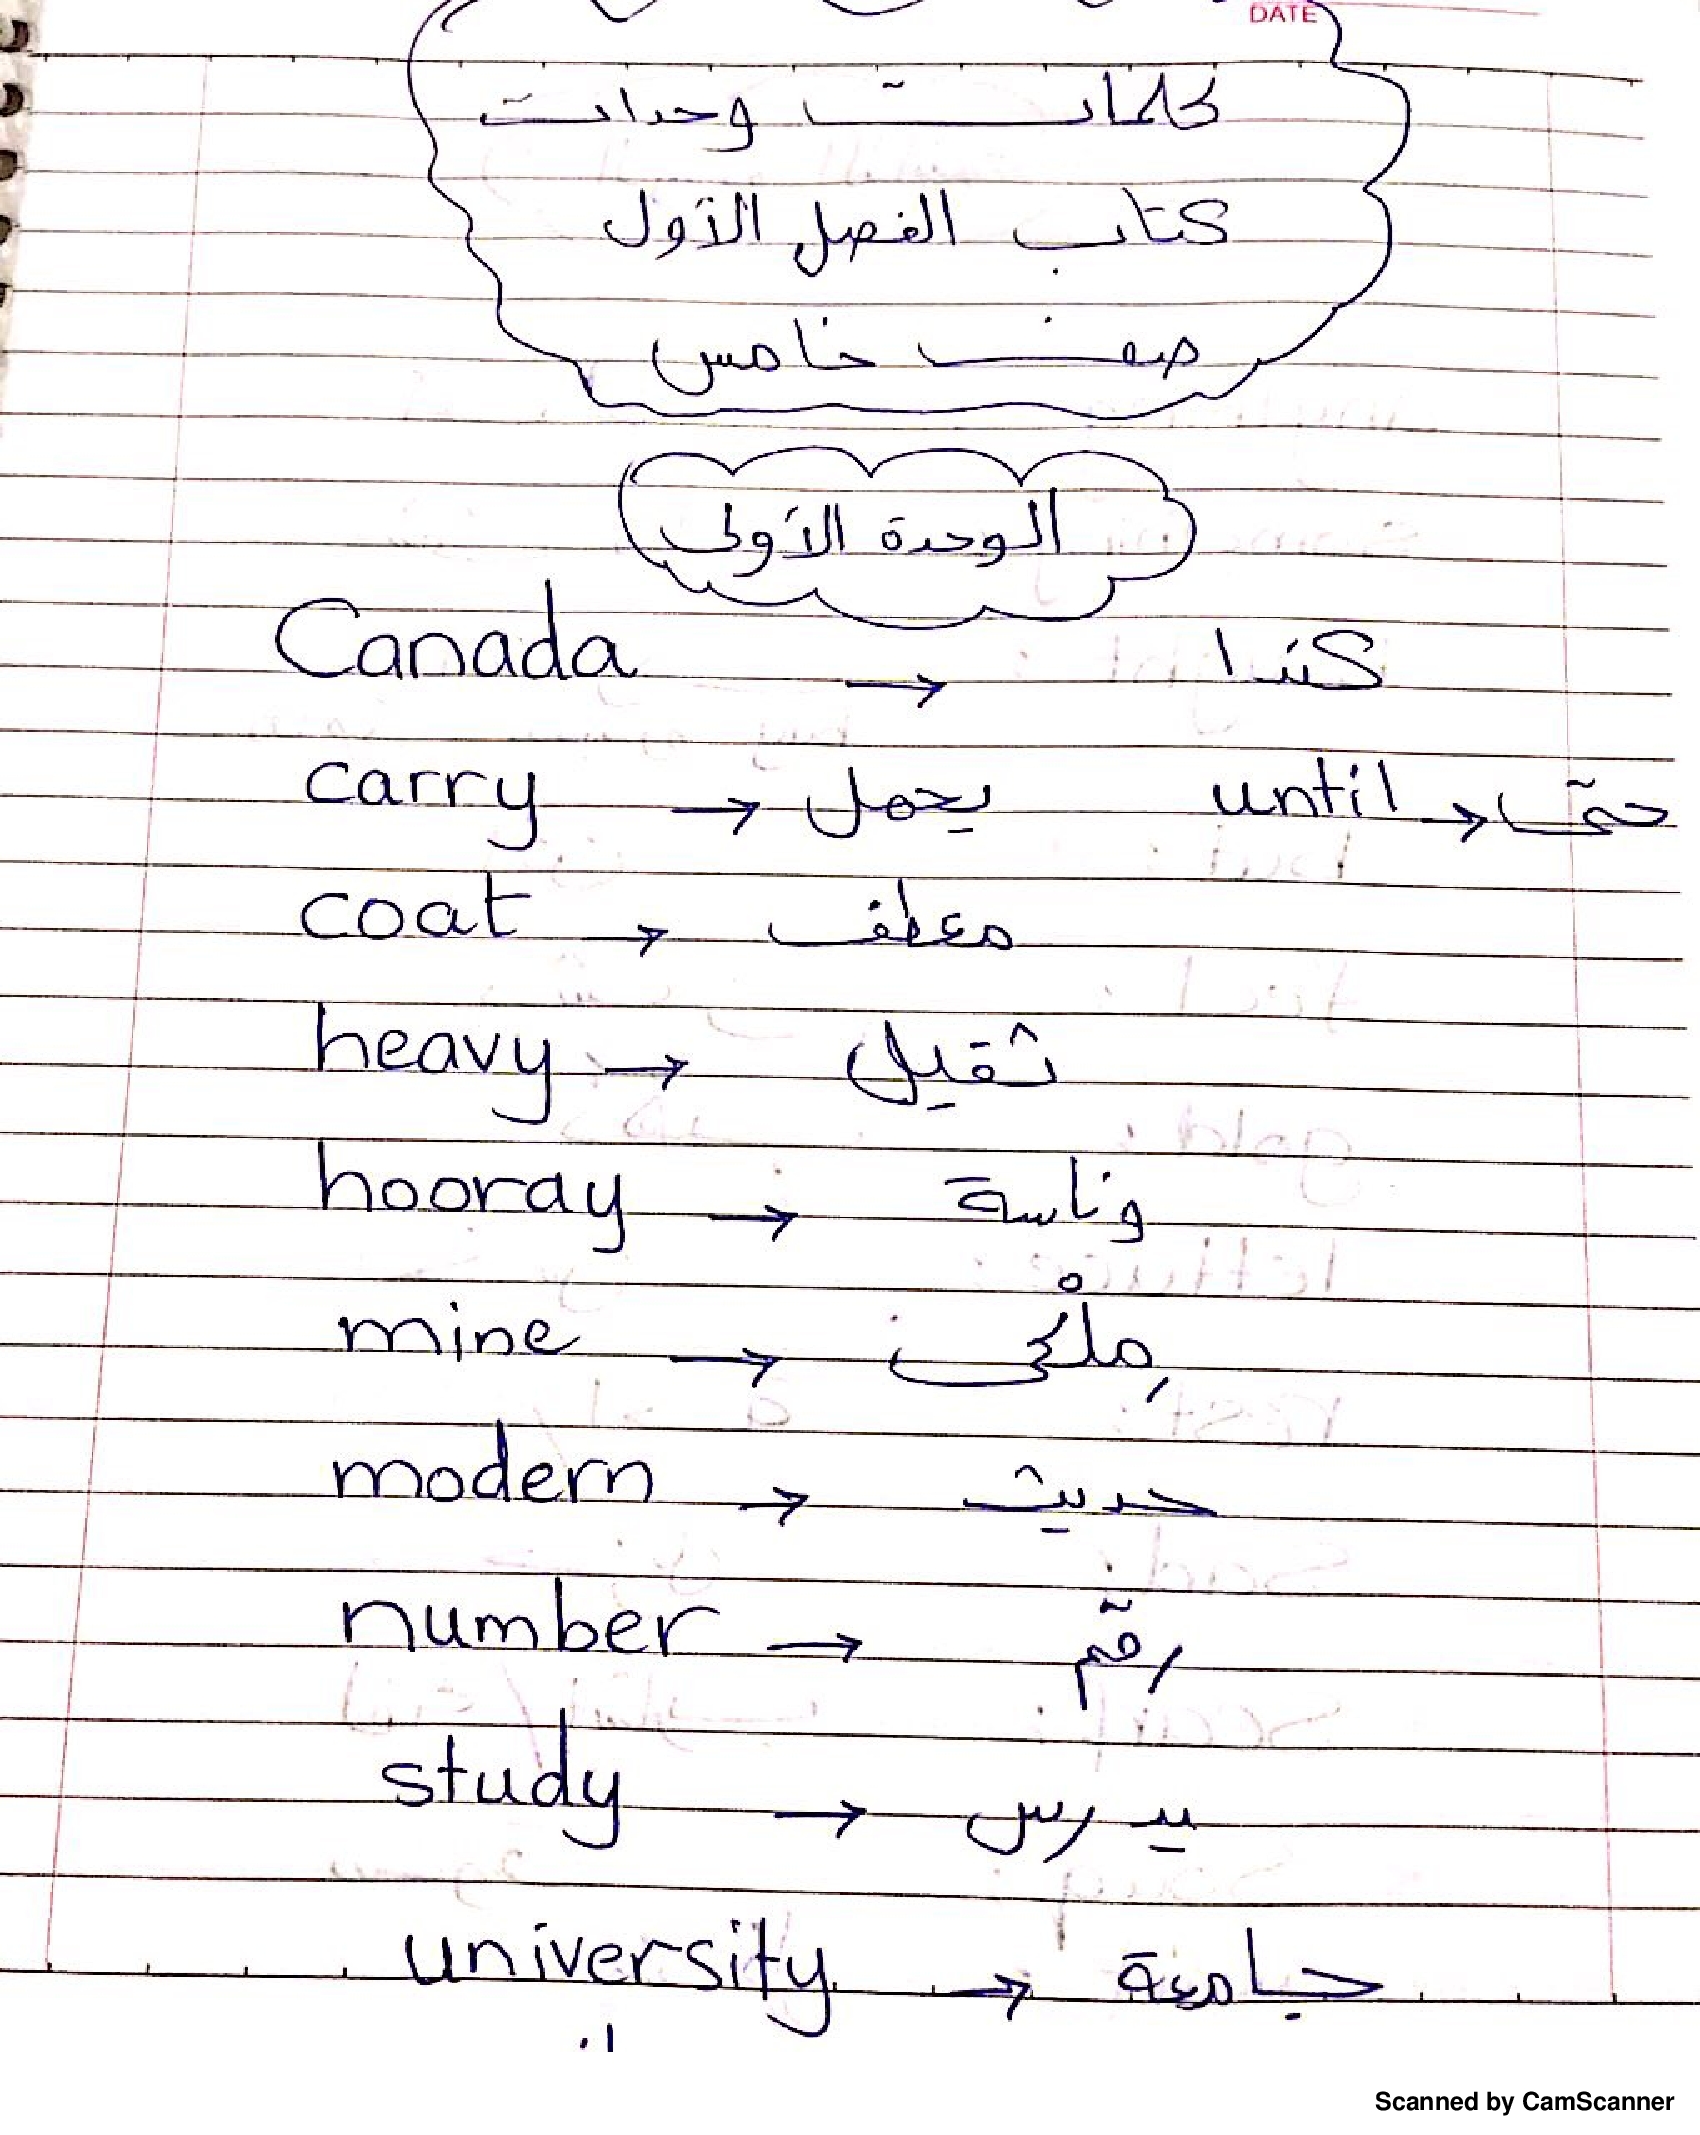 DATE
كلمات وحدات
كتاب الفصل الأول
صف خامس
الوحدة الأولى
Canada → كندا
carry → يحمل until → حتى
coat → معطف
heavy → ثقيل
hooray → وناسة
mine → مِلْكي
modern → حديث
number → رقم
study → يدرس
university → جامعة
Scanned by CamScanner